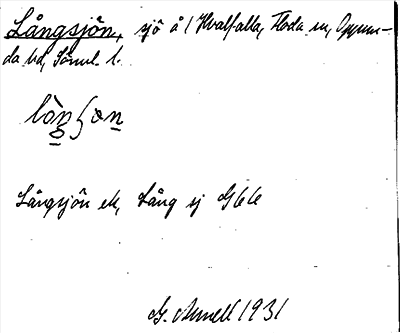 Långsjön, sjö å 1 Hvalfalla, Floda sn, Oppun-
da hd, Söml. l.
Långsjön ek, Lång sj G66
G. Arnell 1931